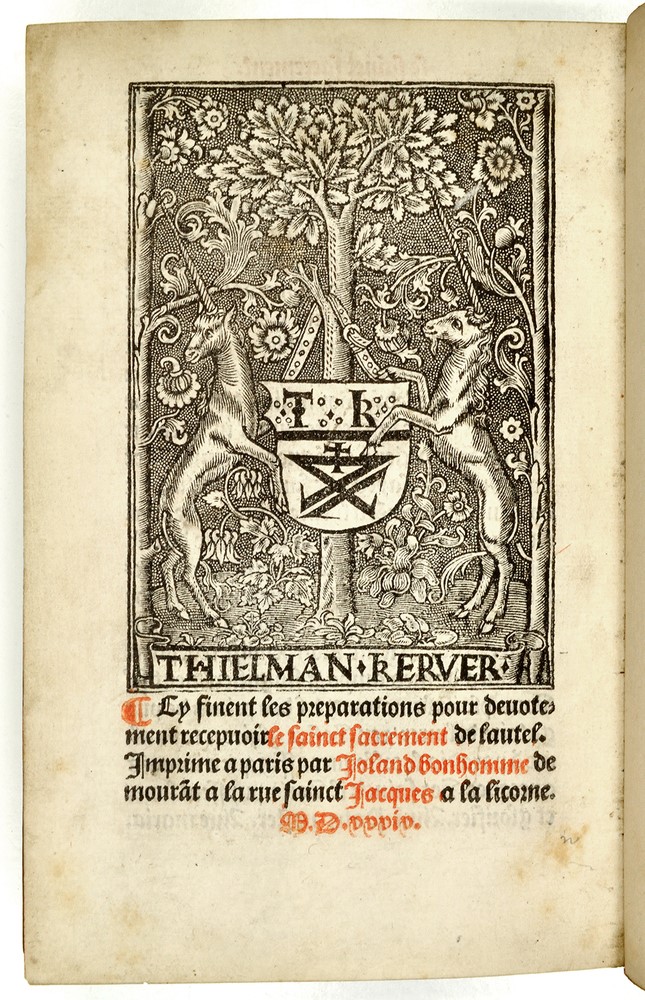 T k
THIELMAN · KERVER ·
¶ Cy finent les preparations pour deuote⸗
ment recepuoir le sainct sacrement de lautel.
Imprime a paris par Joland bonhomme de
mourāt a la rue sainct Jacques a la licorne.
M. D. xxxiv.